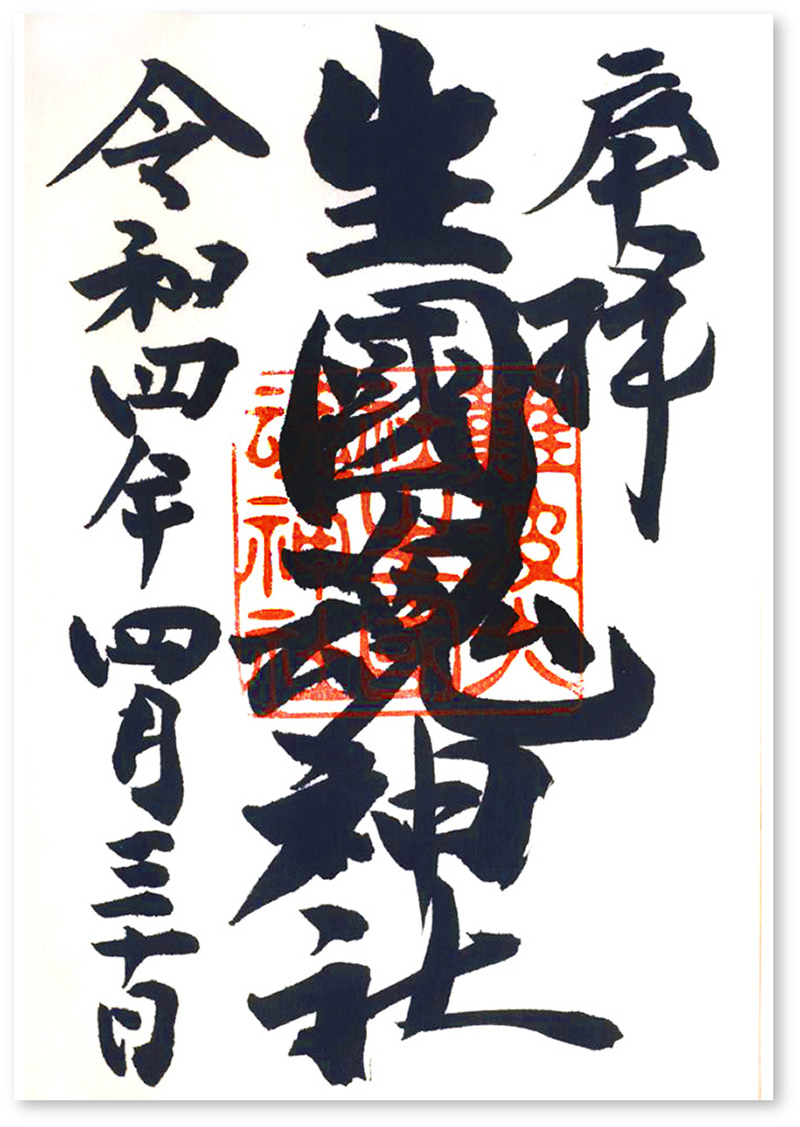 奉拝
生國魂神社
令和四年四月三十日
難波大
社生國
魂神社